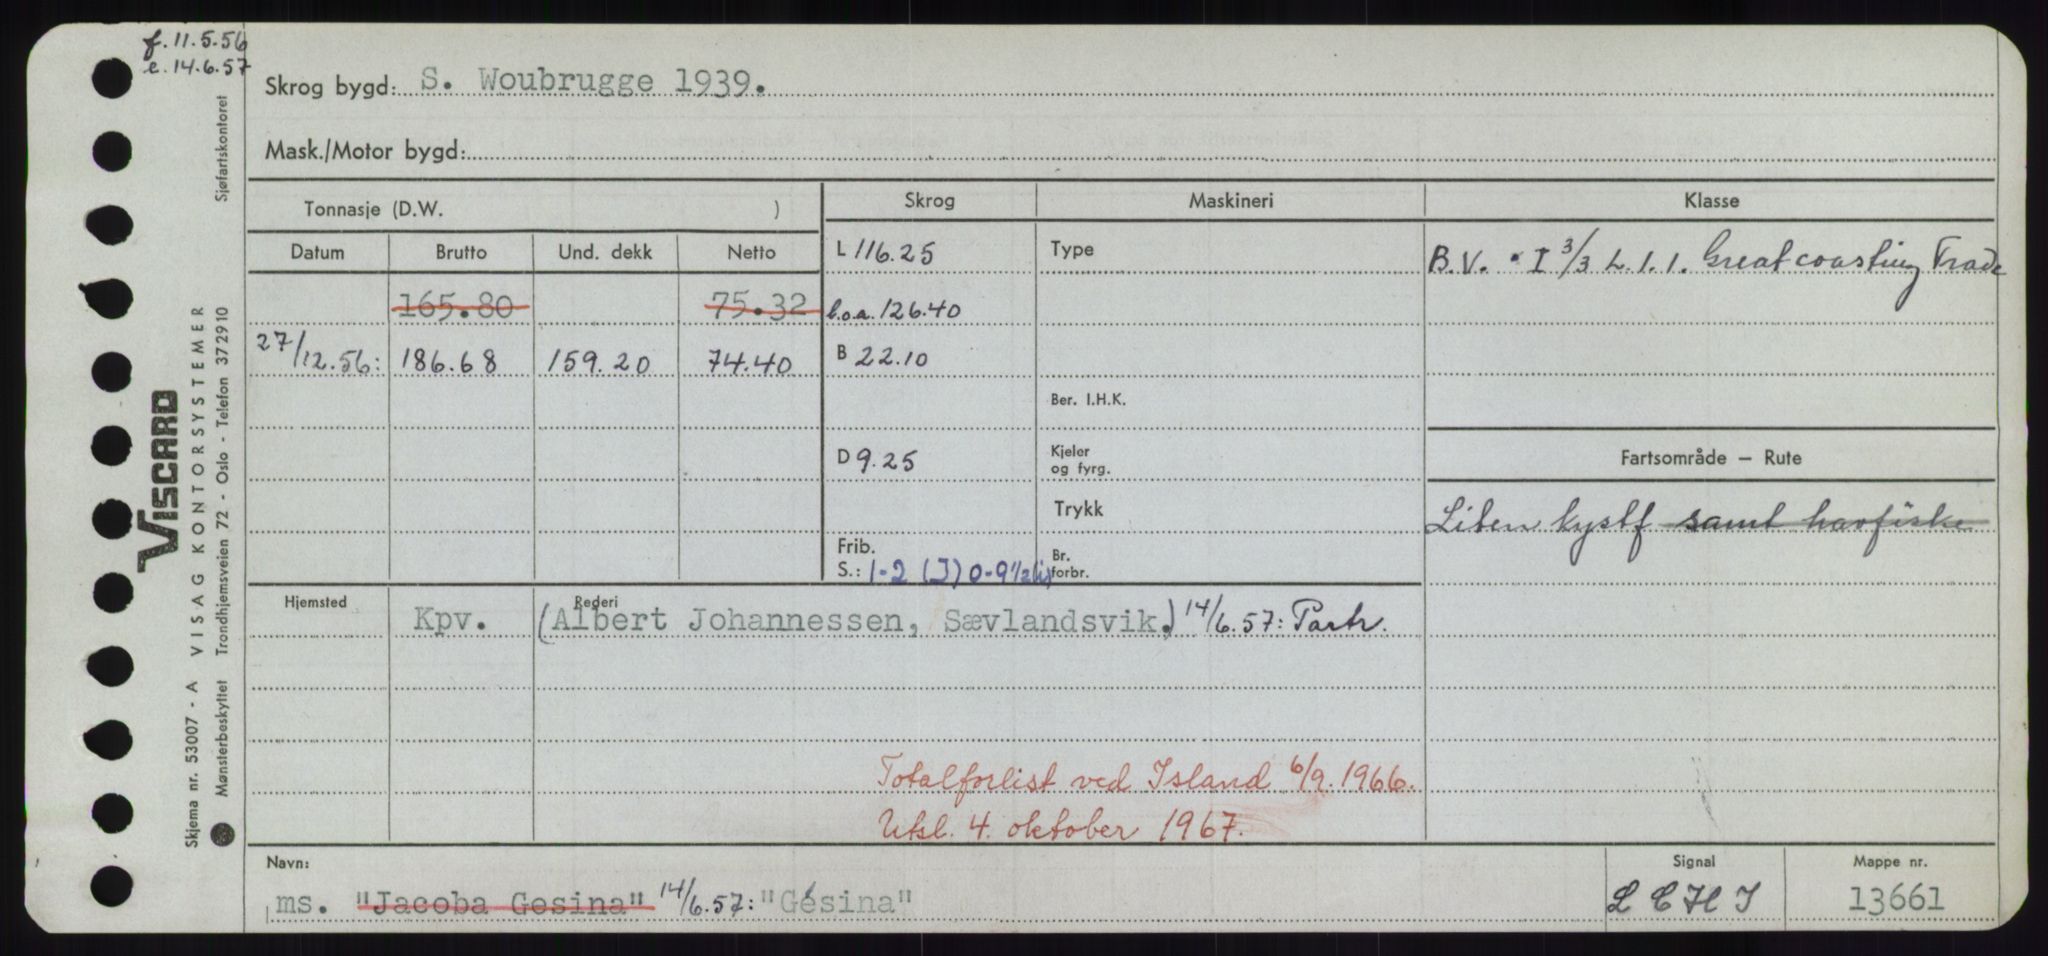 f. 11.5.56
e. 14.6.57
Skrog bygd: S. Woubrugge 1939.
Mask./Motor bygd:
Tonnasje (D.W. )
Skrog Maskineri Klasse
Datum Brutto Und. dekk Netto
L 116.25 Type B.V. I 3/3 L.1.1. Great coasting Trade
165.80 75.32 l.o.a. 126.40
27/12.56: 186.68 159.20 74.40 B 22.10
Ber. I.H.K.
D 9.25 Kjeler og fyrg. Fartsområde – Rute
Trykk Liten kystf samt havfiske
Frib. S.: 1-2 (J) 0-9 1/2 (i) Br. forbr.
Hjemsted Rederi
Kpv. (Albert Johannessen, Sævlandsvik.) 14/6.57: Partr.
Totalforlist ved Island 6/9.1966.
Utsl. 4. oktober 1967.
Navn: Signal Mappe nr.
ms. "Jacoba Gesina" 14/6.57: "Gesina" LEHJ 13661
Sjøfartskontoret
VISCARD
VISAG KONTORSYSTEMER
Trondhjemsveien 72 - Oslo - Telefon 372910
Skjema nr. 53007 - A
Mønsterbeskyttet